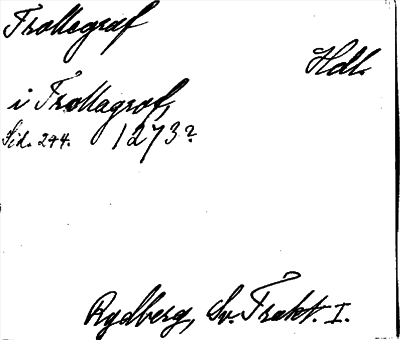 Trollegraf
Hdl.
i Trollagrof,
Sid. 244. 1273?
Rydberg, Sv. Trakt. I.